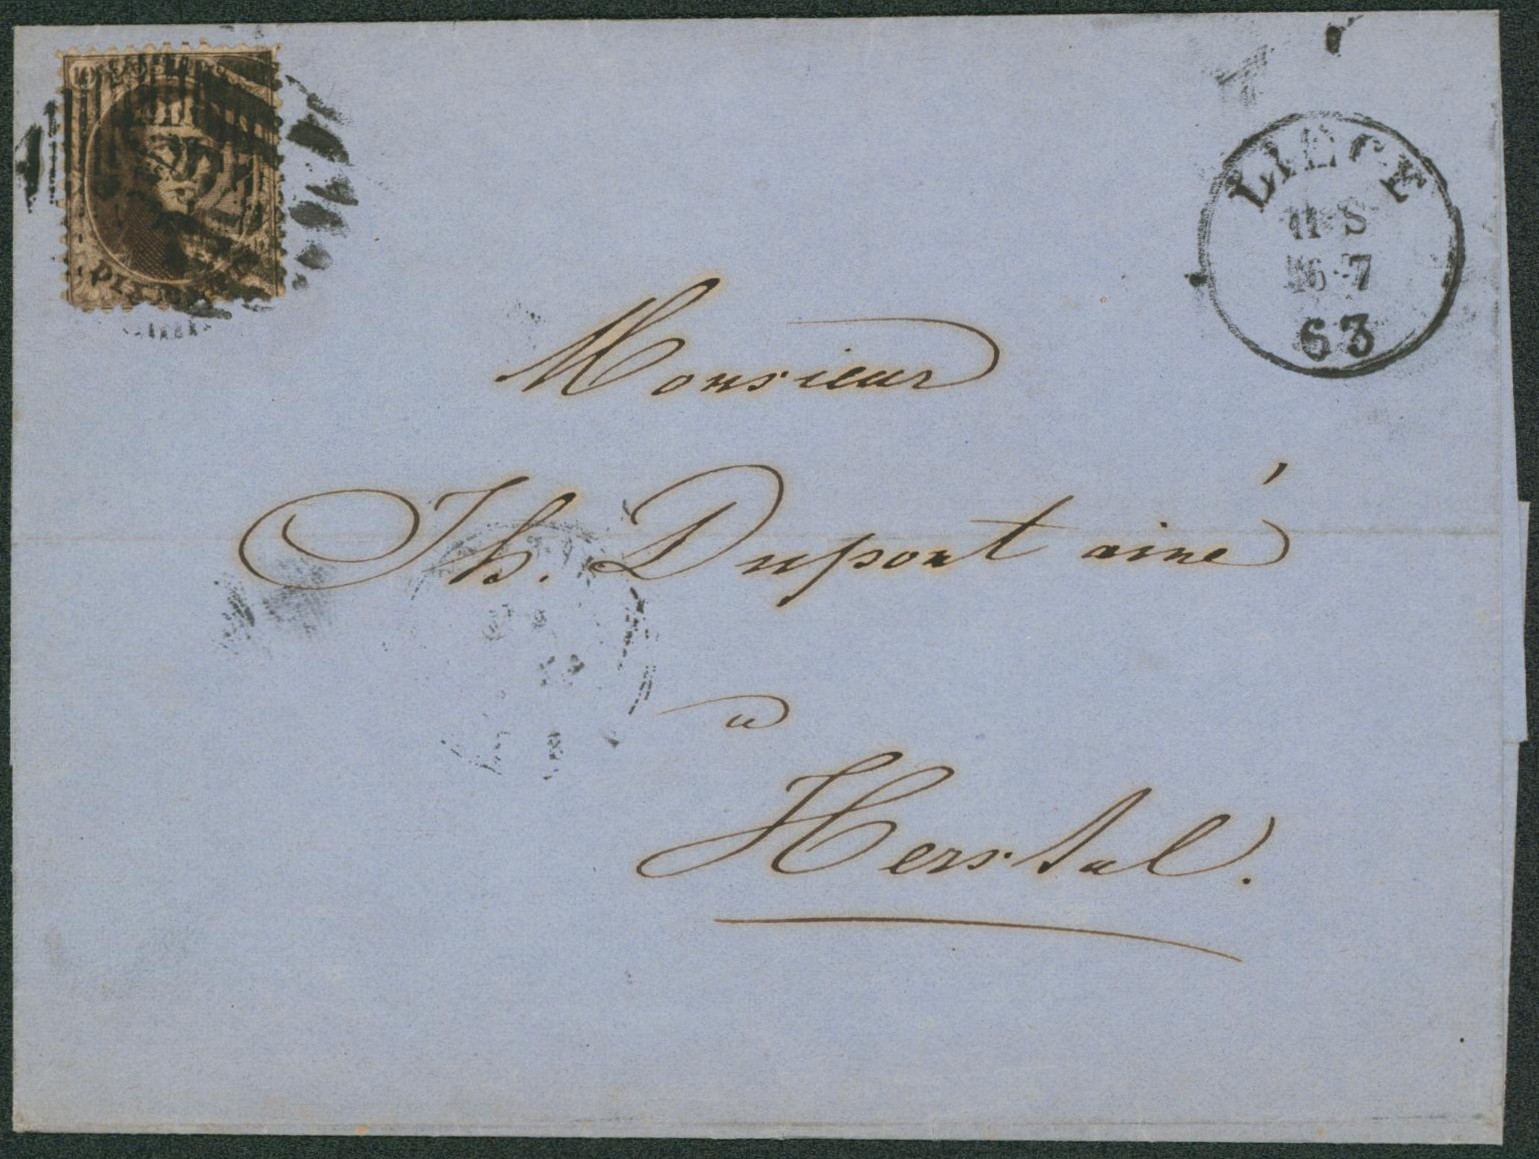 LIEGE
11-S
16-7
63
Monsieur
Th. Dupont ainé
a
Herstal.